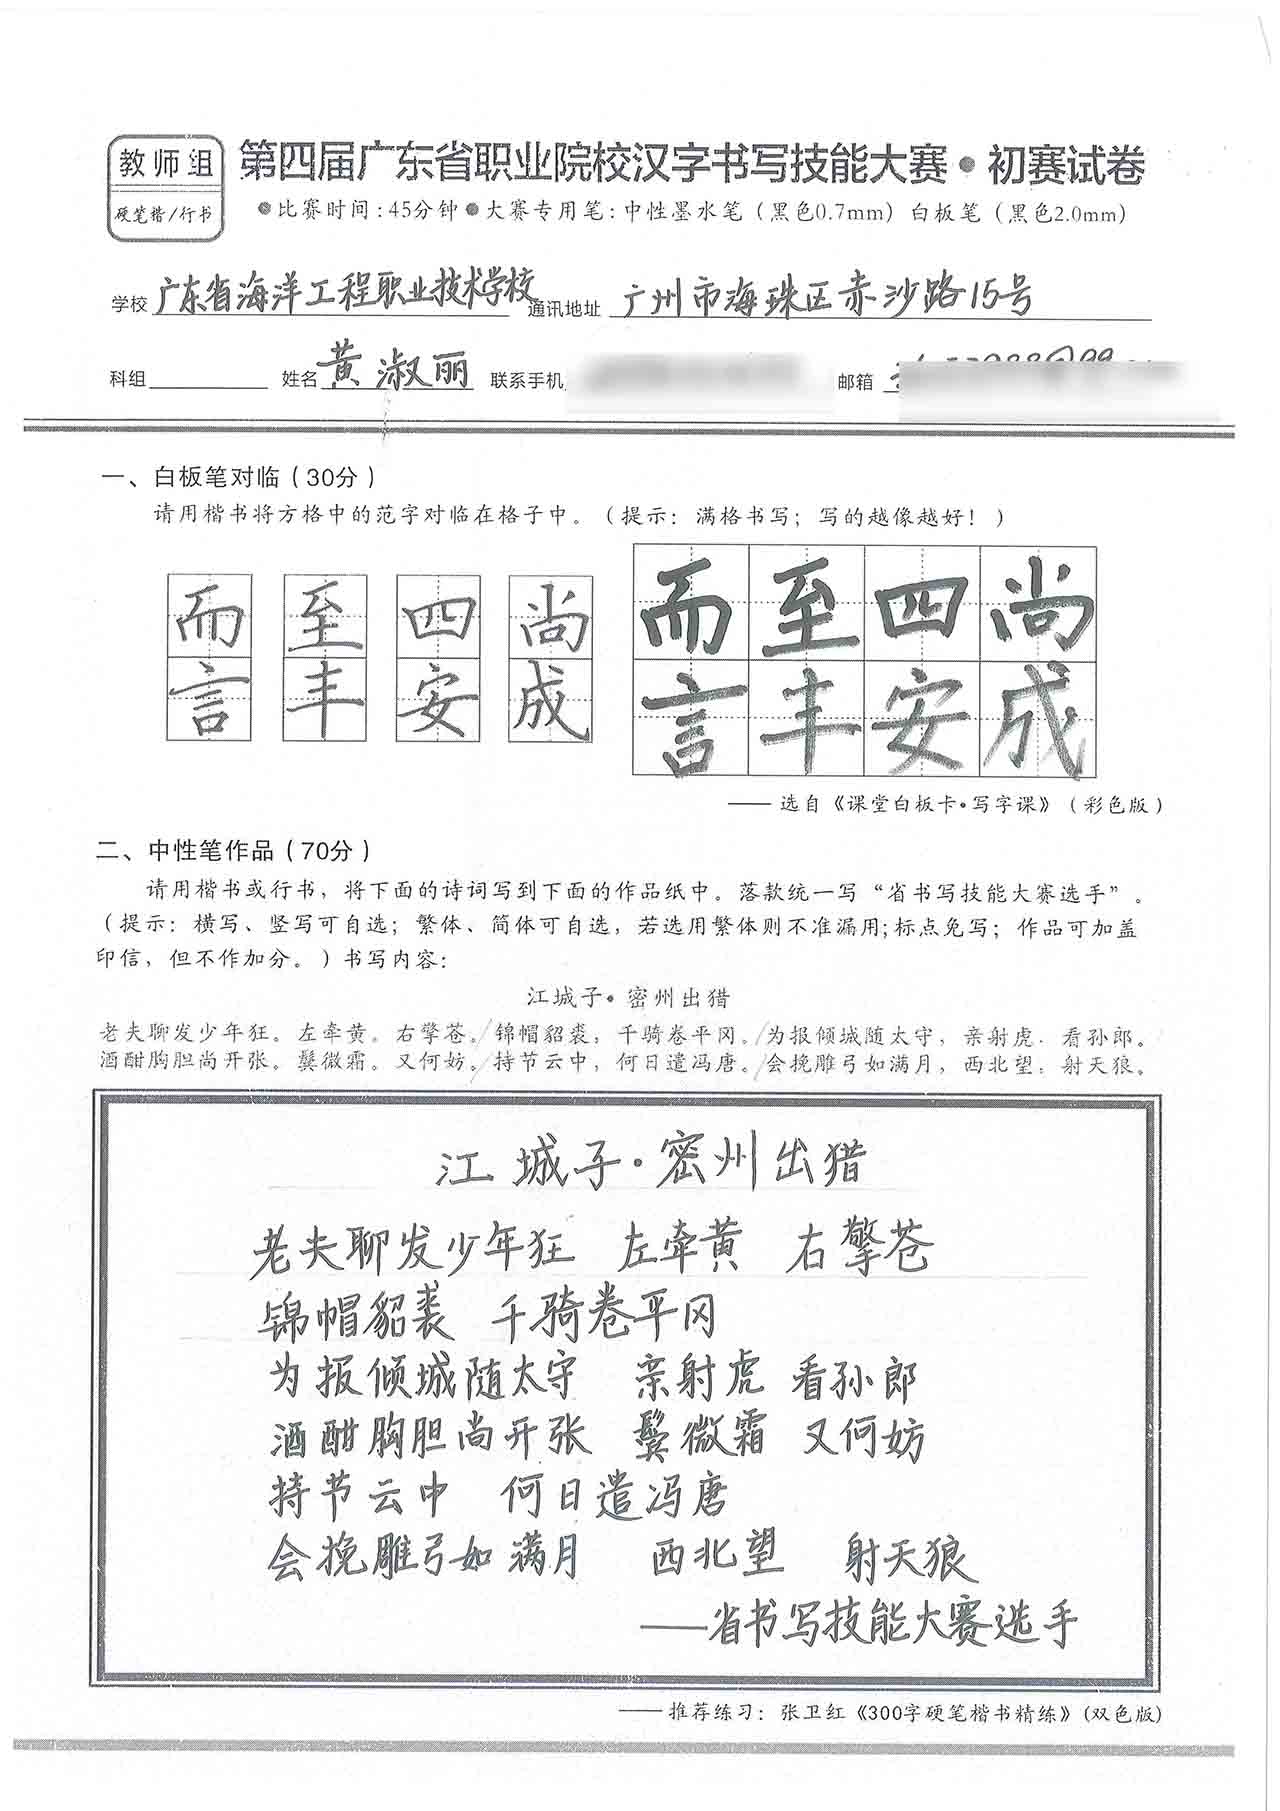 教师组
硬笔楷/行书
第四届广东省职业院校汉字书写技能大赛•初赛试卷
●比赛时间:45分钟●大赛专用笔:中性墨水笔(黑色0.7mm)白板笔(黑色2.0mm)
学校 广东省海洋工程职业技术学校 通讯地址 广州市海珠区赤沙路15号
科组 姓名 黄淑丽 联系手机 邮箱
一、白板笔对临(30分)
请用楷书将方格中的范字对临在格子中。(提示: 满格书写; 写的越像越好!)
而 至 四 尚 而 至 四 尚
言 丰 安 成 言 丰 安 成
——选自《课堂白板卡•写字课》(彩色版)
二、中性笔作品(70分)
请用楷书或行书,将下面的诗词写到下面的作品纸中。落款统一写“省书写技能大赛选手”。
(提示: 横写、竖写可自选; 繁体、简体可自选,若选用繁体则不准漏用;标点免写; 作品可加盖
印信,但不作加分。)书写内容:
江城子•密州出猎
老夫聊发少年狂。左牵黄。右擎苍。/锦帽貂裘,千骑卷平冈。/为报倾城随太守,亲射虎.看孙郎。
酒酣胸胆尚开张。鬓微霜。又何妨。/持节云中,何日遣冯唐。/会挽雕弓如满月,西北望.射天狼。
江城子·密州出猎
老夫聊发少年狂 左牵黄 右擎苍
锦帽貂裘 千骑卷平冈
为报倾城随太守 亲射虎 看孙郎
酒酣胸胆尚开张 鬓微霜 又何妨
持节云中 何日遣冯唐
会挽雕弓如满月 西北望 射天狼
——省书写技能大赛选手
——推荐练习: 张卫红《300字硬笔楷书精练》(双色版)